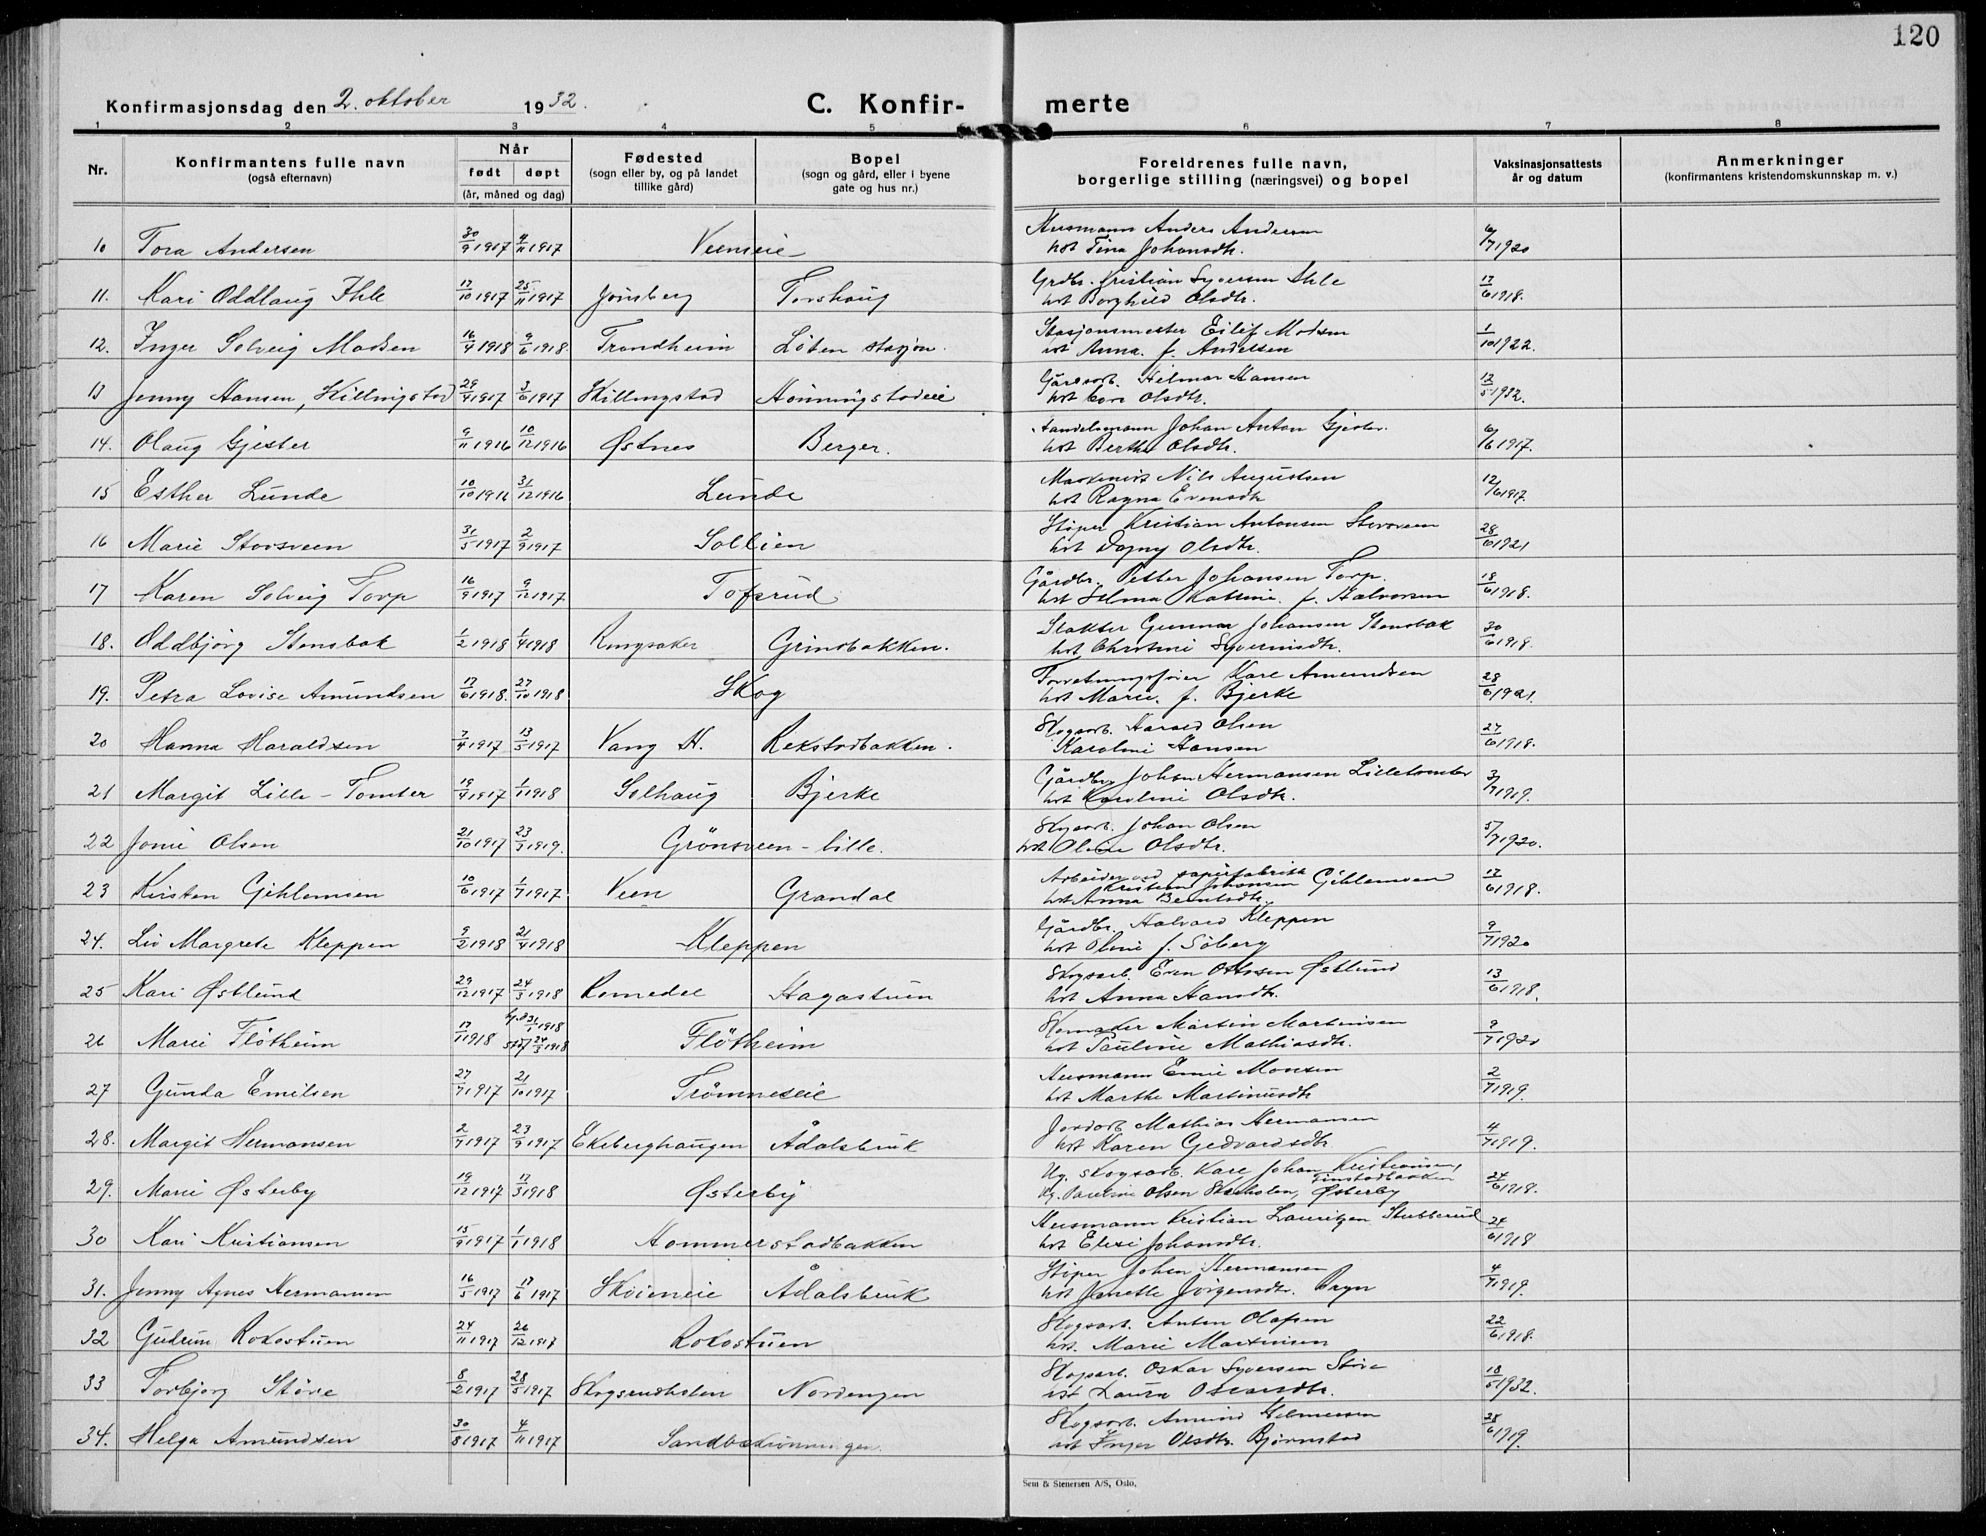 120
Konfirmasjonsdag den 2. oktober 1932.
C. Konfir- merte
1 2 3 4 5 6 7 8
Nr. Konfirmantens fulle navn (også efternavn) Når født døpt (år, måned og dag) Fødested (sogn eller by, og på landet tillike gård) Bopel (sogn og gård, eller i byene gate og hus nr.) Foreldrenes fulle navn, borgerlige stilling (næringsvei) og bopel Vaksinasjonsattests år og datum Anmerkninger (konfirmantens kristendomskunnskap m. v.)
10 Tora Andersen 30/9 1917 4/11 1917 Veenseie Husmann Anders Andersen
hst Tina Johansdtr. 6/7 1920
11. Kari Oddlaug Ihle 17/10 1917 25/11 1917 Jønsberg Torshaug Grdbr. Kristian Syversen Ihle
hst Borghild Olsdtr. 17/6 1918.
12. Inger Solveig Madsen 16/4 1918 9/6 1918. Trondheim Løten stasjon. Stasjonsmester Eilif Madsen
hst Anna f. Andelsen 1/10 1922.
13 Jenny Hansen, Killingstad 29/4 1917 3/6 1917 Killingstad Hørningstadeie Gårdsarb. Hilmar Hansen
hst Olsdtr. 12/5 1932.
14. Olaug Gjester 9/11 1916 10/12 1916 Østnes Berger. Handelsmann Johan Anton Gjester.
hst Berthe Olsdtr. 6/6 1917.
15 Esther Lunde 10/10 1916 31/12 1916 Lunde Maskinist Nils Augustsen
hst Ragna Evensdtr 12/6 1917.
16 Marie Storsveen 31/5 1917 2/9 1917 Sollien Støper Kristian Antonsen Storsveen
hst Dagny Olsdtr. 28/6 1921
17 Karen Solveig Torp 16/9 1917 9/12 1917 Tofsrud Gårdbr. Petter Johansen Torp.
hst Katrine f. Halvorsen 18/6 1918.
18. Oddbjørg Stensbak 1/2 1918 1/4 1918 Ringsaker Grindbakken. Slakter Gunnar Johansen Stensbak
hst Christine Syverinsdtr. 30/6 1918.
19. Petra Lovise Amundsen 17/6 1918. 27/10 1918. Skog Forretningsfører Karl Amundsen
hst Marie. f. Bjerke 28/6 1921.
20 Hanna Haraldsen 7/4 1917 13/5 1917 Vang H. Rekstadbakken. Skogsarb. Harald Olsen
Karoline Hansen 27/6 1918.
21 Margit Lille-Tomter 19/9 1917 1/1 1918 Solhaug Bjerke Gårdbr. Johan Hermansen Lilletomter
hst Karoline Olsdtr. 3/7 1919.
22 Jonie Olsen 21/10 1917 23/3 1919. Grønsveen-lille. Skgsarb. Johan Olsen
hst Oline Olsdtr. 5/7 1920.
23 Kirsten Gihlemsen 10/6 1917 1/7 1917. Veen Grandal Arbeider ved papirfabrikk
Kristian Johansen Gihlemsen
hst Anna Berntsdtr. 17/6 1918.
24. Liv Margrete Kleppen 9/2 1918 21/4 1918 Kleppen Gårdbr. Halvard Kleppen
hst Oline f. Søberg 9/7 1920
25 Kari Østlund 29/12 1917 24/3 1918 Romedal Hagastuen Skogsarb. Even Ottosen Østlund
hst Anna Hansdtr. 13/6 1918.
26 Marie Fløtheim 17/1 1918 hj.d. 31/1 1918
stdf. 24/3 1918 Fløtheim Skomaker Martin Martinsen
hst Pauline Mathiasdtr. 9/7 1920
27 Gunda Emilsen 27/7 1917 21/10 1917 Trømneseie Husmann Emil Monsen
hst Marthe Martinusdtr 2/7 1919.
28. Margit Hermansen 2/7 1917 23/9 1917 Ekeberghaugen Ådalsbruk Jordarb. Mathias Hermansen
hst Karen Gedvardsdtr 4/7 1919.
29. Marie Østerby 19/12 1917 17/3 1918 Østerby Ug. skogsarb. Karl Johan Kristiansen,
Pg. Olsen Østerby 24/6 1918.
30 Kari Kristiansen 15/9 1917 1/1 1918 Hommerstadbakken Husmann Kristian Lauritzen Stubberud
hst Elise Johansdtr. 24/6 1918
31. Jenny Agnes Hermansen 16/5 1917 17/6 1917 Skøieneie Ådalsbruk Støper Johan Hermansen
hst Janette Jørgensdtr. Bryn 4/7 1919.
32 Gudrun Rokostuen 24/11 1917 26/12 1917 Rokostuen Skogsarb. Anton Olafsen
hst. Marie Martinsen 22/6 1918.
33 Torbjørg Støve 8/2 1917 28/5 1917 Skogsrudholen Nordengen Skogsarb. Oskar Syversen Støve
hst Laura 18/5 1932.
34. Helga Amundsen 30/8 1917 4/11 1917 Skogsarb. Amund Helmersen
hst Inger Olsdtr. Bjørnstad 28/6 1919.
Sem & Stenersen A/S, Oslo.